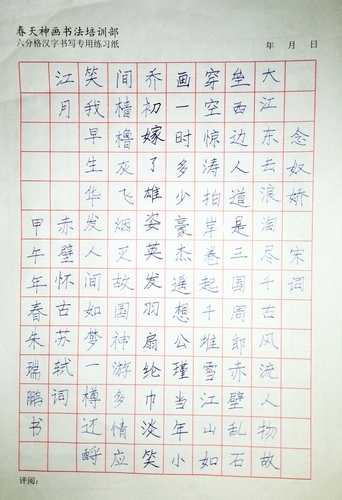 春天神画书法培训部
六分格汉字书写专用练习纸
年 月 日
念奴娇 宋词
大江东去浪淘尽千古风流人物故
垒西边人道是三国周郎赤壁乱石
穿空惊涛拍岸卷起千堆雪江山如
画一时多少豪杰遥想公瑾当年小
乔初嫁了雄姿英发羽扇纶巾淡笑
间樯橹灰飞烟灭故国神游多情应
笑我早生华发人间如梦一樽还酹
江月 赤壁怀古苏轼词
甲午年春朱瑞鹏书
评阅：